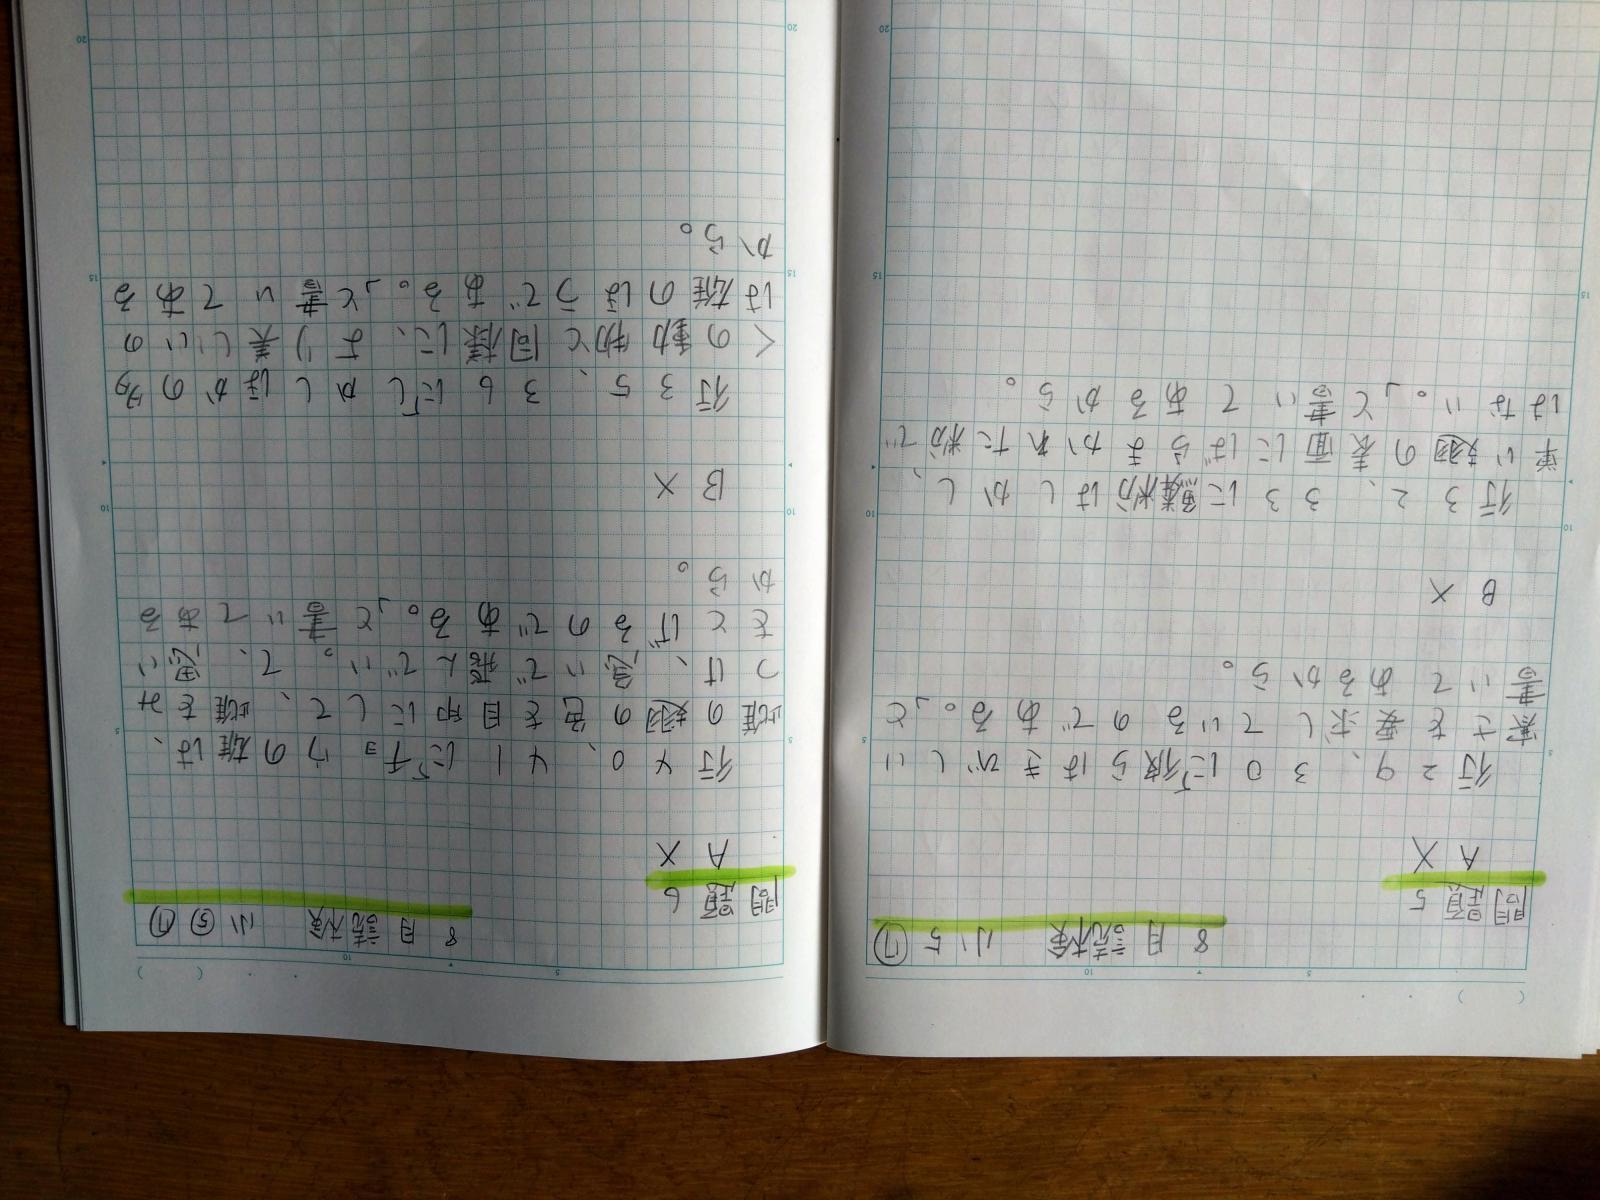 8月 読検 小5 ⑦
問題5
A X
行29、30に「彼らはきびしい
寒さを要求しているのである。」と
書いてあるから。
B X
行32、33に「鱗粉はしかし、
単い翅の表面にばらまかれた粉で
はない。」と書いてあるから。
8月 読検 小⑤ ⑦
問題6
A X
行40、41に「チョウの雄は、
雌の翅の色を目印にして、雌をみ
つけ、急いで飛んでい。て、思い
をとげるのである。」と書いてある
から。
B X
行35、36に「しかしほかの多
くの動物と同様に、より美しいの
は雄のほうである。」と書いてある
から。